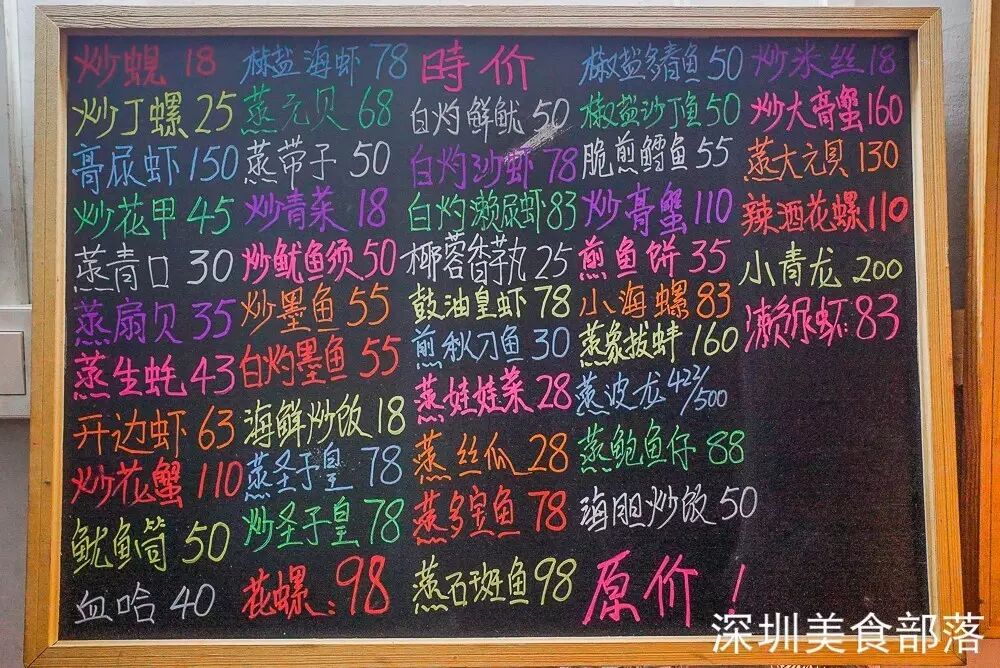 炒蚬 18
炒丁螺 25
膏尿虾 150
炒花甲 45
蒸青口 30
蒸扇贝 35
蒸生蚝 43
开边虾 63
炒花蟹 110
鱿鱼筒 50
血哈 40
椒盐海虾 78
蒸元贝 68
蒸带子 50
炒青菜 18
炒鱿鱼须 50
炒墨鱼 55
白灼墨鱼 55
海鲜炒饭 18
蒸圣子皇 78
炒圣子皇 78
花螺:98
時价
白灼鲜鱿 50
白灼沙虾 78
白灼濑尿虾 83
椰蓉香芋丸 25
鼓油皇虾 78
煎秋刀鱼 30
蒸娃娃菜 28
蒸丝瓜 28
蒸多宝鱼 78
蒸石斑鱼 98
椒盐多春鱼 50
椒盐沙丁鱼 50
脆煎鱈鱼 55
炒膏蟹 110
煎鱼饼 35
小海螺 83
蒸象拔蚌 160
蒸波龙 422/500
蒸鲍鱼仔 88
海胆炒饭 50
原价!
炒米丝 18
炒大膏蟹 160
蒸大元贝 130
辣酒花螺 110
小青龙 200
濑尿虾:83
深圳美食部落